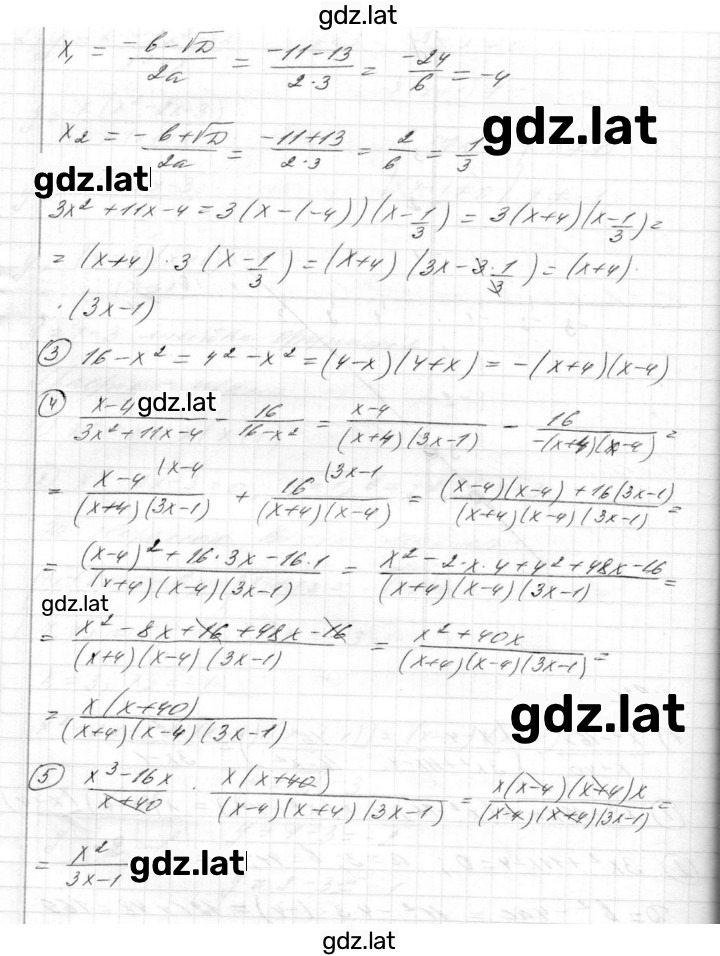 gdz.lat
x₁ = (-b-√D)/(2a) = (-11-13)/(2·3) = (-24)/6 = -4
gdz.lat
x₂ = (-b+√D)/(2a) = (-11+13)/(2·3) = 2/6 = 1/3
gdz.lat
3x²+11x-4=3(x-(-4))(x-1/3)=3(x+4)(x-1/3)=
=(x+4)·3(x-1/3)=(x+4)(3x-3·1/3)=(x+4)·
·(3x-1)
③ 16-x²=4²-x²=(4-x)(4+x)=-(x+4)(x-4)
gdz.lat
④ (x-4)/(3x²+11x-4) - 16/(16-x²) = (x-4)/((x+4)(3x-1)) - 16/(-(x+4)(x-4)) =
= (x-4 (x-4)/((x+4)(3x-1)) + 16 (3x-1/((x+4)(x-4)) = ((x-4)(x-4)+16(3x-1))/((x+4)(x-4)(3x-1)) =
= ((x-4)²+16·3x-16·1)/((x+4)(x-4)(3x-1)) = (x²-2·x·4+4²+48x-16)/((x+4)(x-4)(3x-1)) =
gdz.lat
= (x²-8x+16+48x-16)/((x+4)(x-4)(3x-1)) = (x²+40x)/((x+4)(x-4)(3x-1)) =
= (x(x+40))/((x+4)(x-4)(3x-1))
gdz.lat
⑤ (x³-16x)/(x+40) · (x(x+40))/((x-4)(x+4)(3x-1)) = (x(x-4)(x+4)x)/((x-4)(x+4)(3x-1)) =
= x²/(3x-1)
gdz.lat
gdz.lat